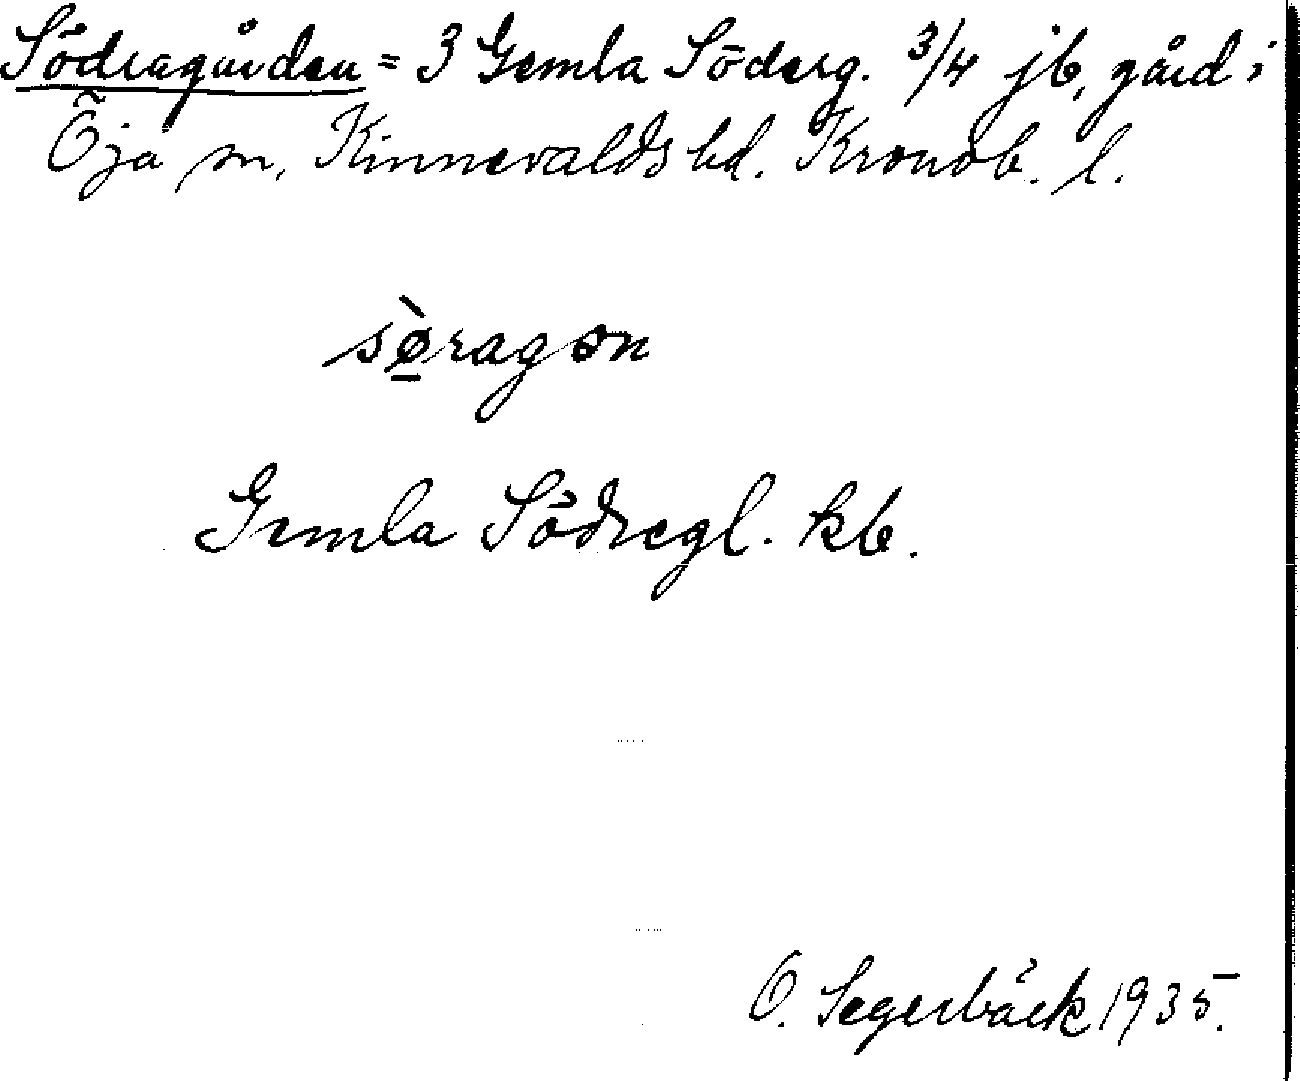 Södragården = 3 Gemla Söderg. 3/4 jb, gård i
Öja sn, Kinnevalds hd. Kronob. l.
sø̠̀ragøn
Gemla Södregl. kb.
O. Segerbäck 1935.